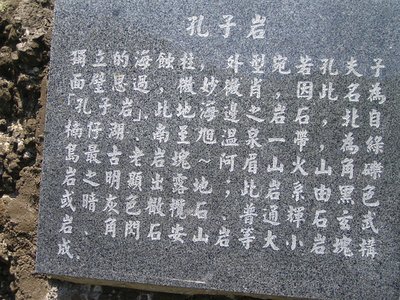 孔子岩
獨立的海蝕柱，外型宛若孔夫子
面壁思過，微妙微肖，因此，名為
「孔子岩」。此地海邊之岩石，北自
楠仔湖、南至旭溫泉一帶，為綠
島最古老岩塊～阿眉山火山角礫
岩之明顯出露地；比岩系由黑色
或暗灰色橄欖石、普通輝石玄武
岩、角閃安山岩等大小岩塊構
成。